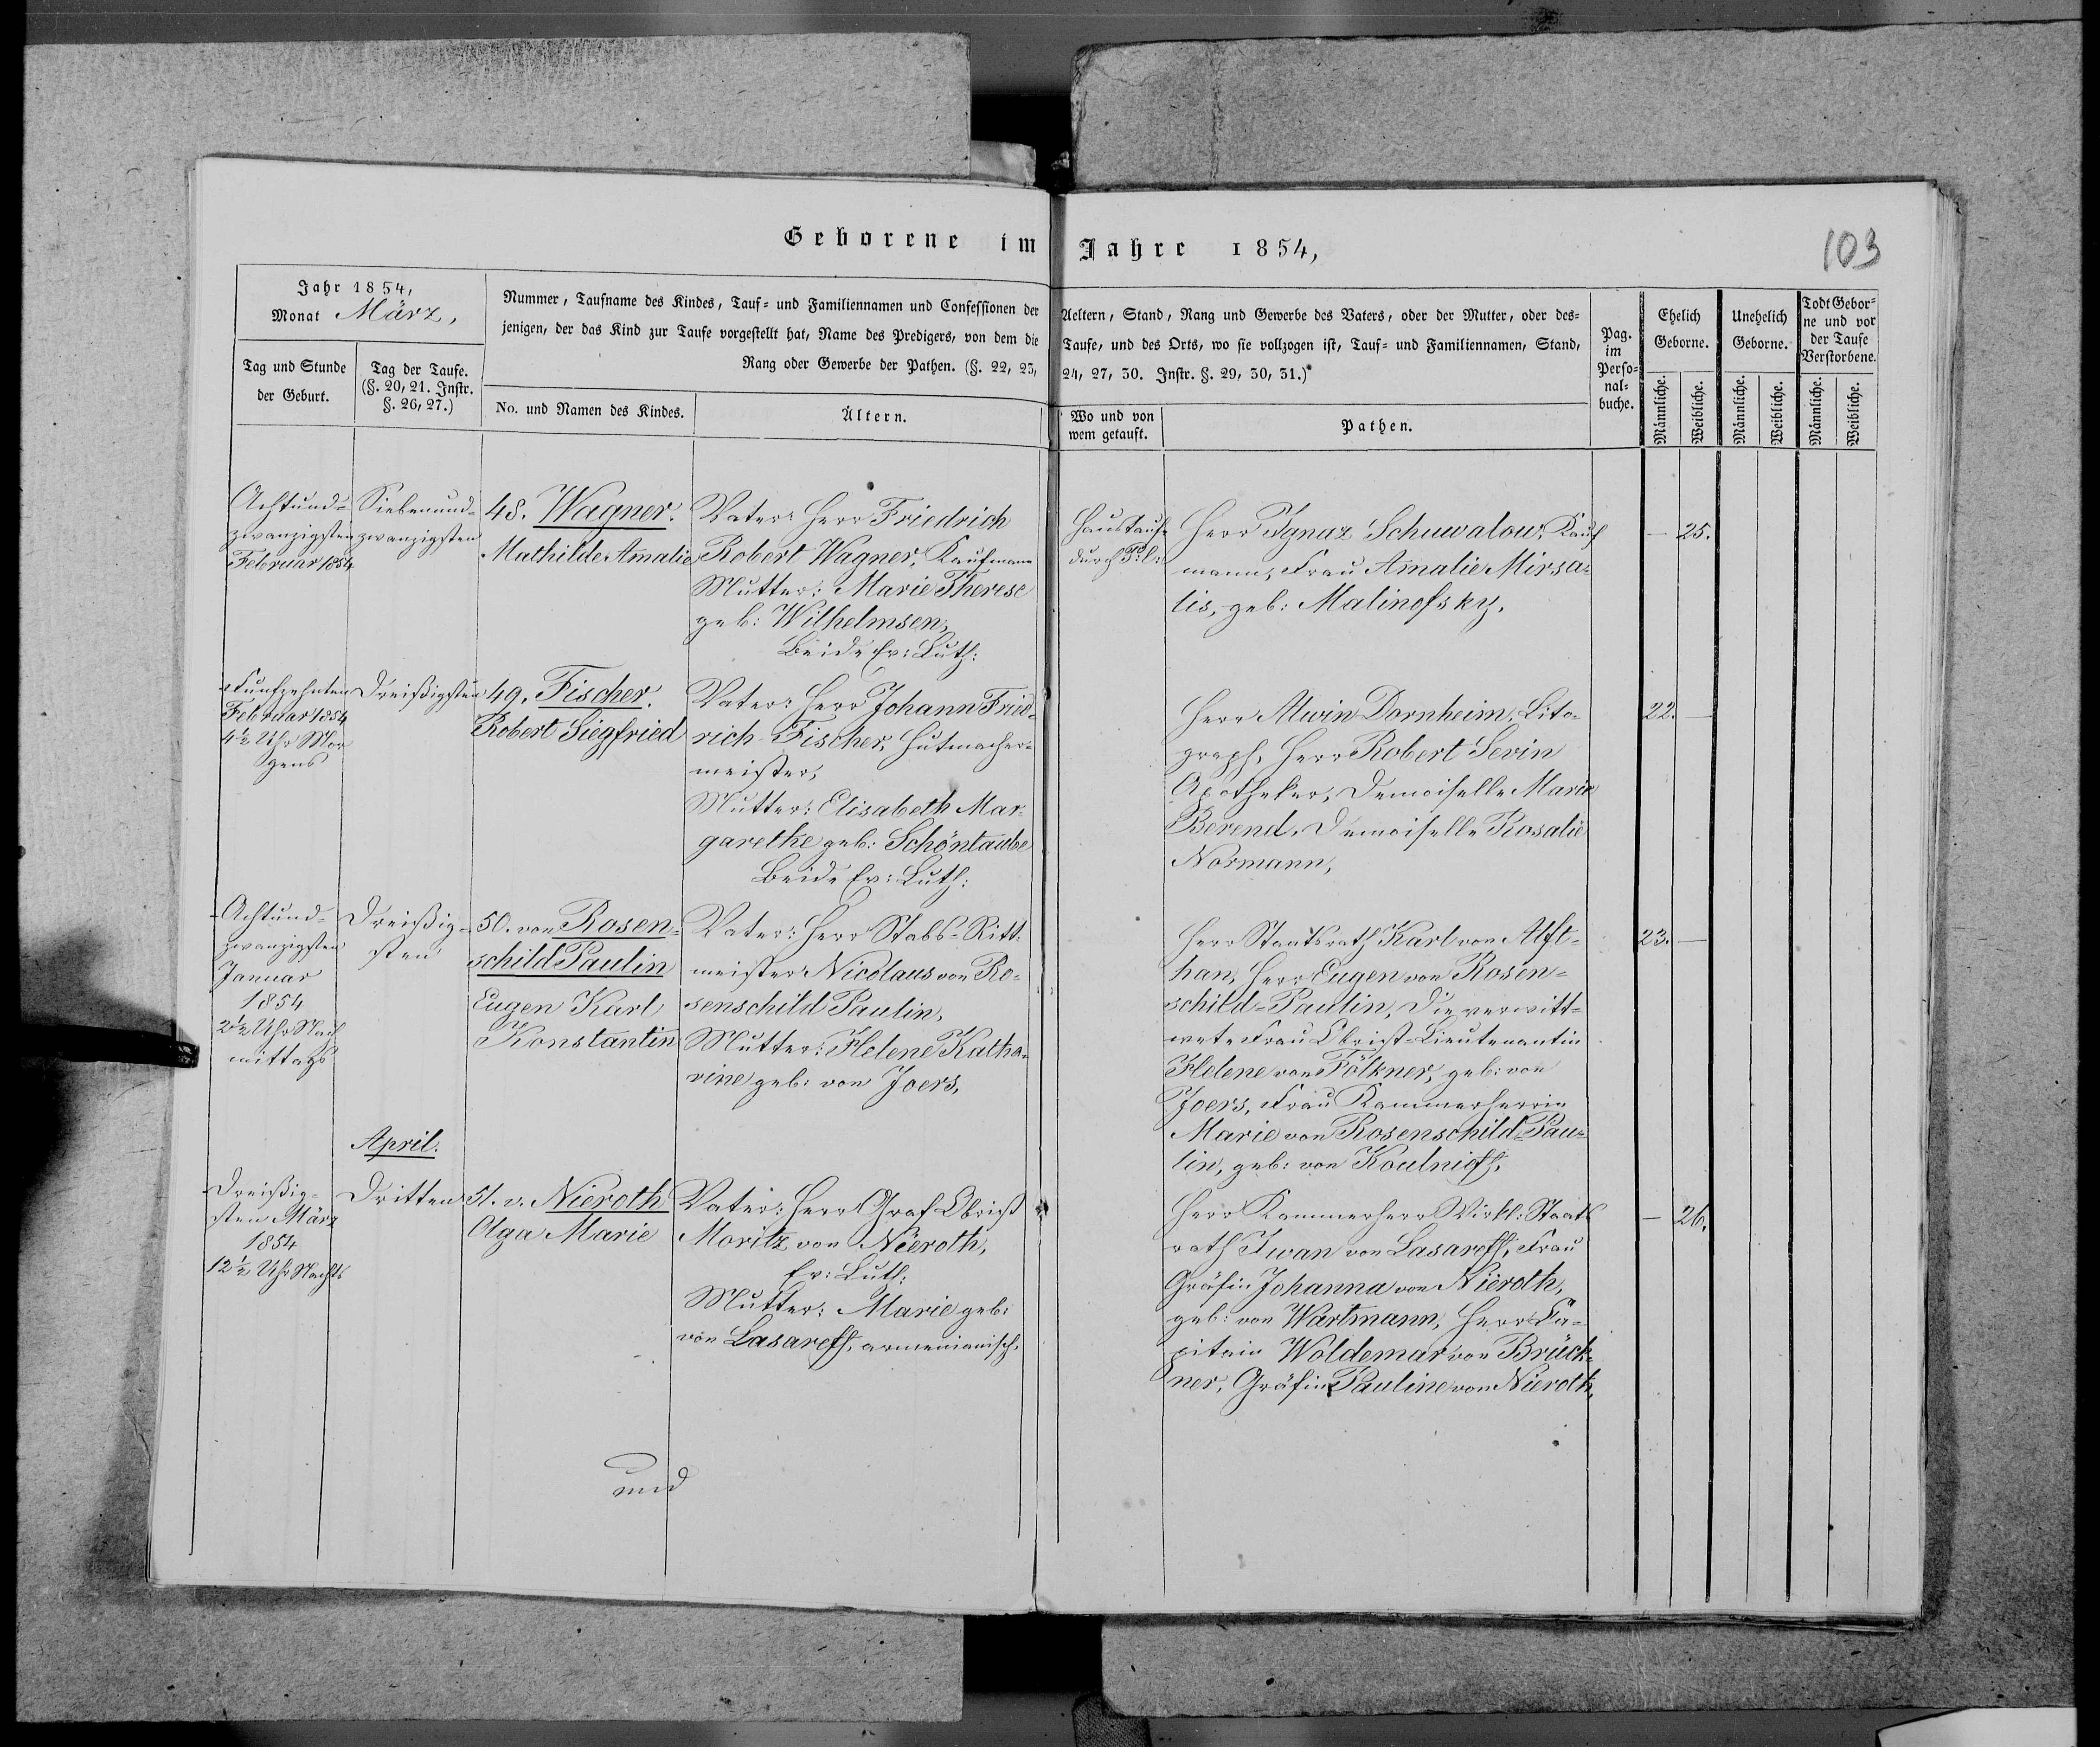 Geborene im Jahre 1854,
103
Jahr 1854,
Monat März,
Nummer, Taufname des Kindes, Tauf- und Familiennamen und Confessionen der Aeltern, Stand, Rang und Gewerbe des Vaters, oder der Mutter, oder des-
jenigen, der das Kind zur Taufe vorgestellt hat, Name des Predigers, von dem die Taufe, und des Orts, wo sie vollzogen ist, Tauf- und Familiennamen, Stand,
Rang oder Gewerbe der Pathen. (§. 22, 23, 24, 27, 30. Instr. §. 29, 30, 31.)
Tag und Stunde
der Geburt.
Tag der Taufe.
(§. 20, 21. Instr.
§. 26, 27.)
No. und Namen des Kindes.
Ältern.
Wo und von
wem getauft.
Pathen.
Pag.
im
Perso-
nal-
buche.
Ehelich
Geborne.
Unehelich
Geborne.
Todt Gebor-
ne und vor
der Taufe
Verstorbene.
Männliche.
Weibliche.
Männliche.
Weibliche.
Männliche.
Weibliche.
Achtund-
zwanzigsten
Februar 1854
Siebenund-
zwanzigsten
48. Wagner.
Mathilde Amalie
Vater: Herr Friedrich
Robert Wagner, Kaufmann
Mutter: Marie Therese
geb: Wilhelmsen,
Beide Ev: Luth:
Haustaufe
durch
Herr Ignaz Schuwalow, Kauf
mann, Frau Amalie Mirsa-
lis, geb: Malinofsky.
— 25.
Funfzehnten
Februar 1854
4½ Uhr Mor
gens
Dreißigsten
49. Fischer.
Robert Siegfried
Vater: Herr Johann Fried-
rich Fischer, Hutmacher-
meister,
Mutter: Elisabeth Mar-
garethe geb: Schöntaube
Beide Ev: Luth:
Herr Alwin Dornheim, Lito-
graph, Herr Robert Sevin
Apotheker, Demoiselle Marie
Berend, Demoiselle Rosalie
Normann,
22. —
Achtund-
zwanzigsten
Januar
1854
2½ Uhr Nach
mittags
Dreißig-
sten
50. von Rosen-
schild Paulin
Eugen Karl
Konstantin
Vater: Herr Stabs-Ritt-
meister Nicolaus von Ro-
senschild Paulin,
Mutter: Helene Katha-
rine geb: von Joers,
Herr Staatsrath Karl von Alft-
han, Herr Eugen von Rosen-
schild-Paulin, Die verwitt-
wete Frau Obrist-Lieutenantin
Helene von Fölkner, geb: von
Joers, Frau Kammerherrin
Marie von Rosenschild-Pau-
lin, geb: von Koulnieff,
23. —
April.
Dreißig-
sten März
1854
12½ Uhr Nachts
Dritten
51. v. Nieroth
Olga Marie
Vater: Herr Graf Obrist
Moritz von Nieroth,
Ev: Luth:
Mutter: Marie geb:
von Lasareff, armenianisch,
Herr Kammerherr Wirkl: Staats
rath Iwan von Lasareff, Frau
Gräfin Johanna von Nieroth,
geb: von Wartmann, Herr Ca-
pitain Woldemar von Brück-
ner, Gräfin Pauline von Nieroth,
— 26.
und